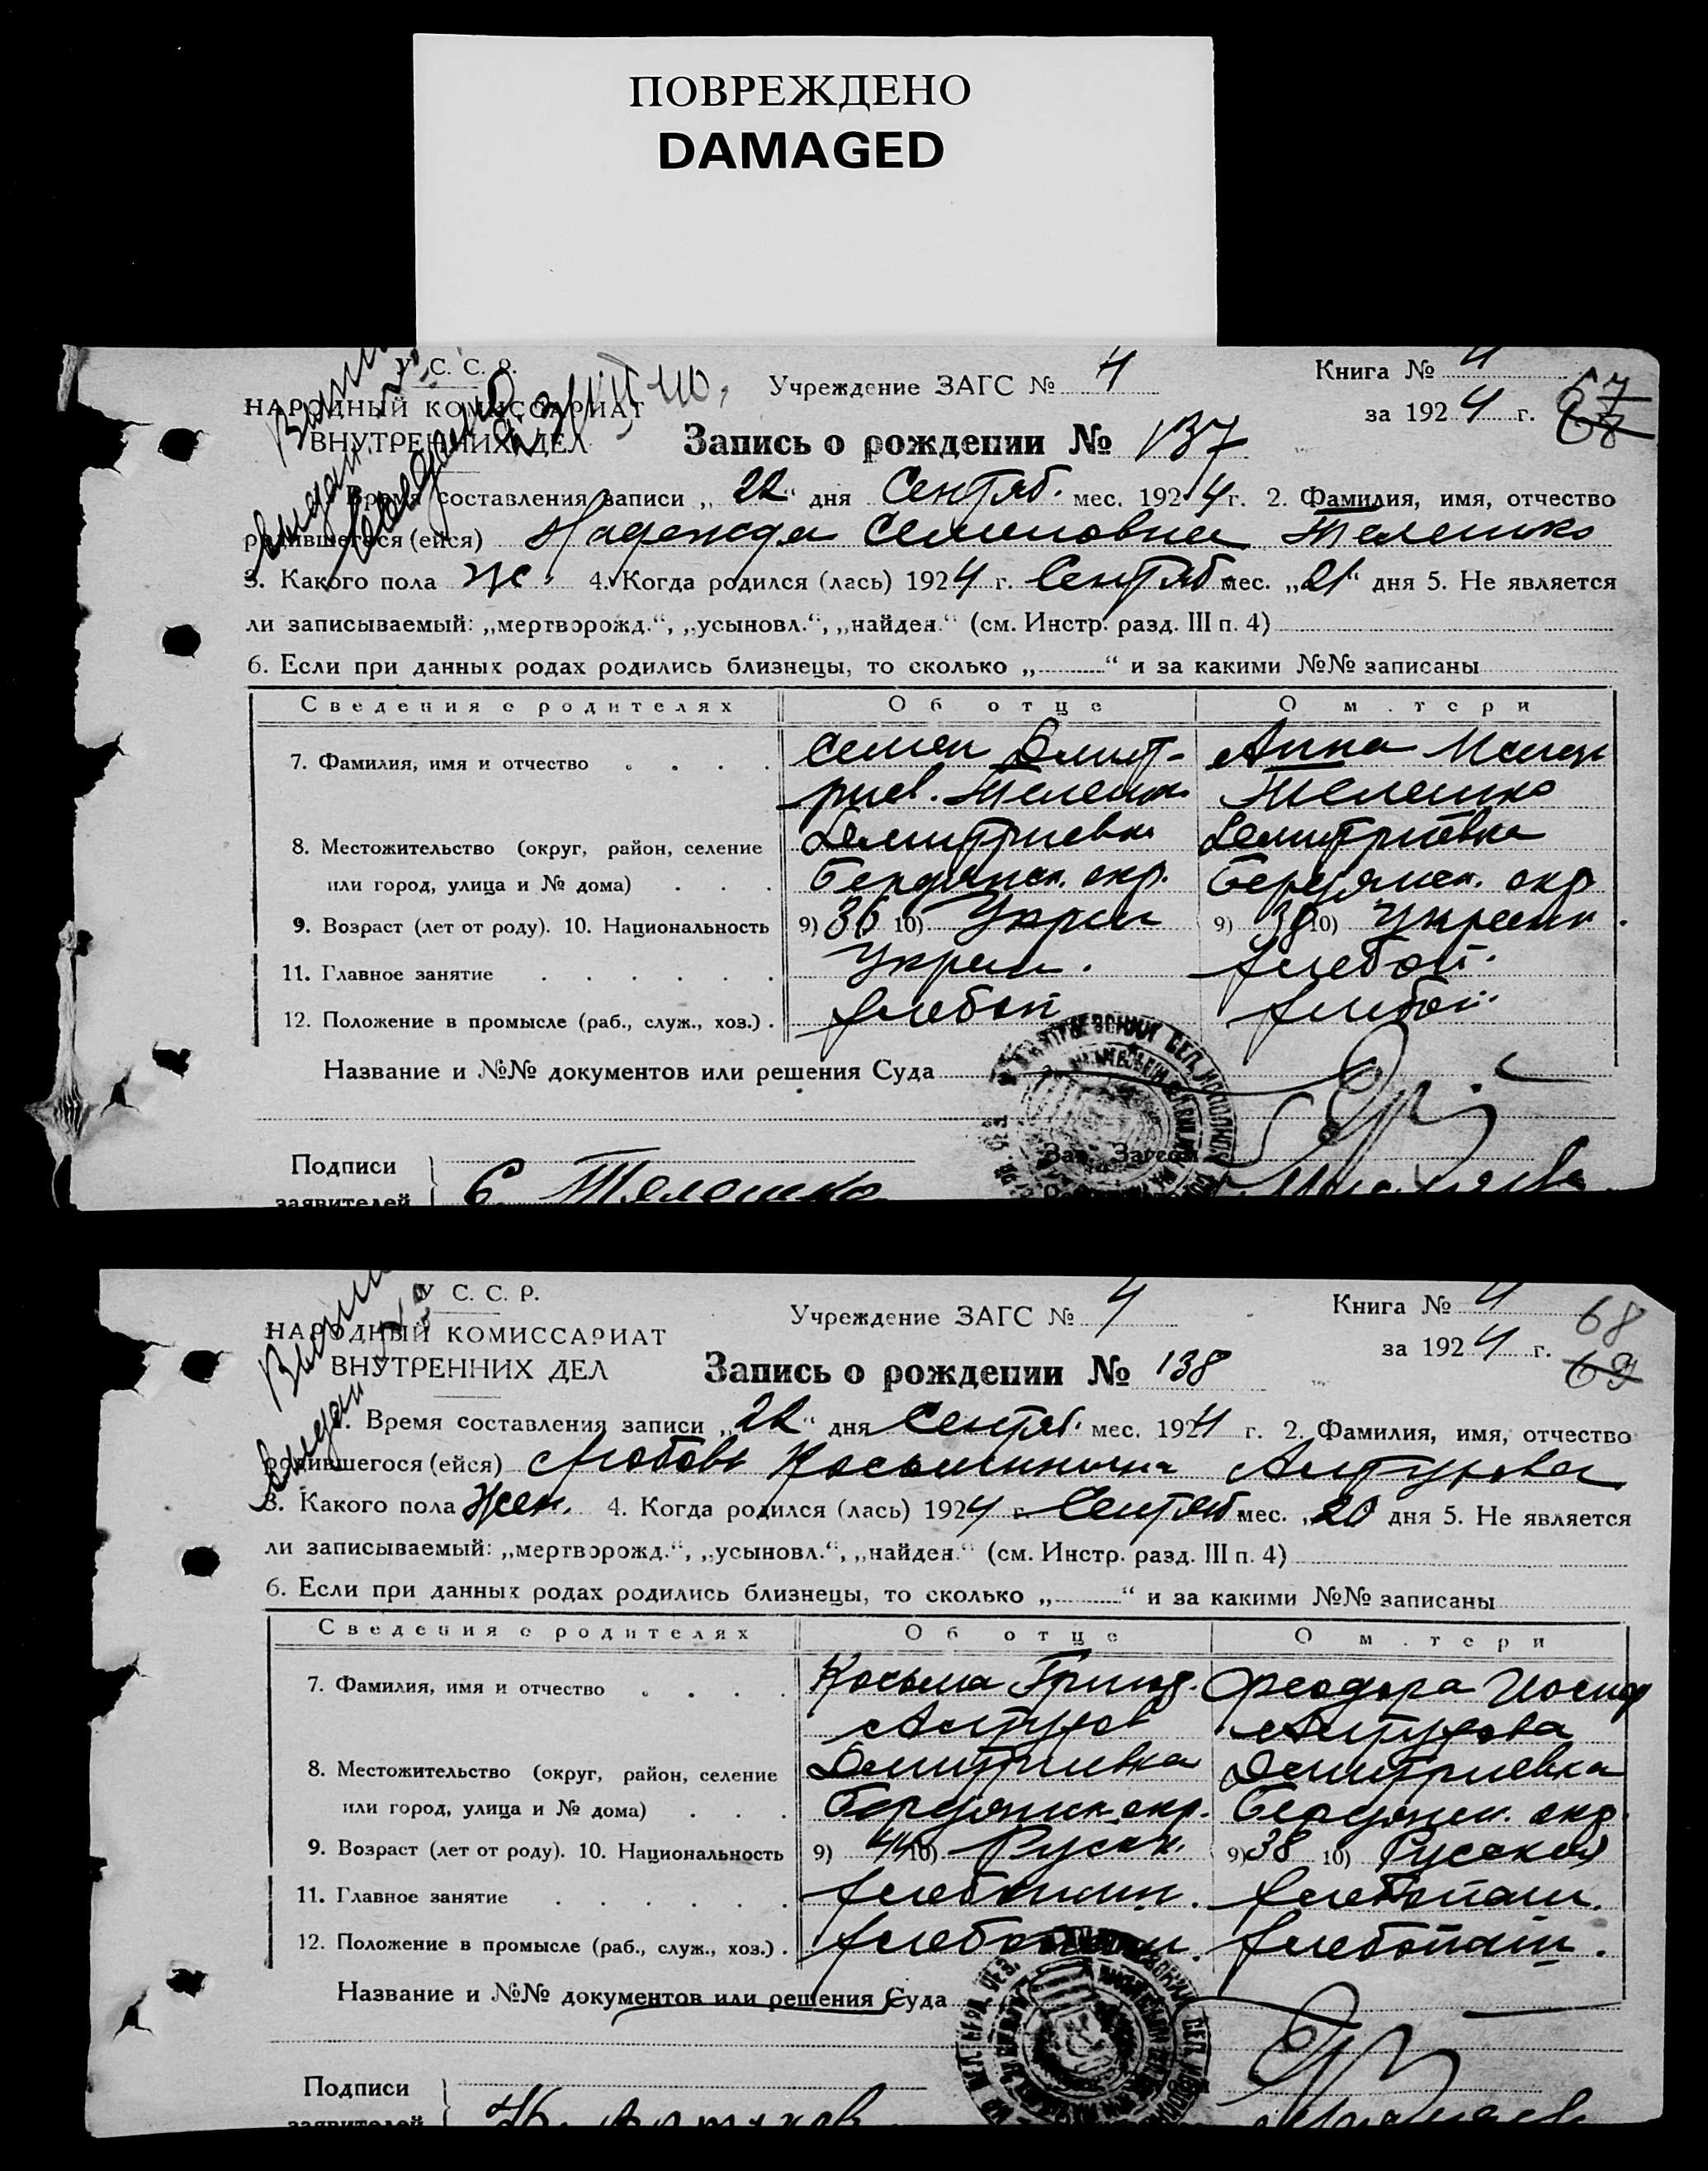 ПОВРЕЖДЕНО
DAMAGED
У. С. С. Р.
НАРОДНЫЙ КОМИССАРИАТ
ВНУТРЕННИХ ДЕЛ
Учреждение ЗАГС № 4
Книга № 4
за 1924 г.
67
68
Запись о рождении № 137
Время составления записи „22“ дня Сентяб. мес. 1924 г. 2. Фамилия, имя, отчество
родившегося (ейся) Надежда Семеновна Телешко
3. Какого пола ж. 4. Когда родился (лась) 1924 г. Сентяб мес. „21“ дня 5. Не является
ли записываемый: „мертворожд.“, „усыновл.“, „найден.“ (см. Инстр. разд. III п. 4)
6. Если при данных родах родились близнецы, то сколько „ “ и за какими №№ записаны
Сведения о родителях Об отце О м.тери
7. Фамилия, имя и отчество Семен Дмит- Анна
риев. Телешко Телешко
8. Местожительство (округ, район, селение Демитриевка Демитриевка
или город, улица и № дома) Бердянск. окр. Бердянск. окр
9. Возраст (лет от роду). 10. Национальность 9) 36 10) Укран 9) 38 10) Украин.
11. Главное занятие Украин. хлебоп.
12. Положение в промысле (раб., служ., хоз.) хлебоп хлебоп.
Название и №№ документов или решения Суда
Зав. Загсом
Подписи
заявителей С. Телешко
У С. С. Р.
НАРОДНЫЙ КОМИССАРИАТ
ВНУТРЕННИХ ДЕЛ
Учреждение ЗАГС № 4
Книга № 4
за 1924 г.
68
69
Запись о рождении № 138
1. Время составления записи „22“ дня Сентяб. мес. 1924 г. 2. Фамилия, имя, отчество
родившегося (ейся) Любовь Косьминична Алтухова
3. Какого пола Жен. 4. Когда родился (лась) 1924 г. Сентяб мес. „20 дня 5. Не является
ли записываемый: „мертворожд.“, „усыновл.“, „найден.“ (см. Инстр. разд. III п. 4)
6. Если при данных родах родились близнецы, то сколько „ “ и за какими №№ записаны
Сведения о родителях Об отце О м.тери
7. Фамилия, имя и отчество Косьма Григор. Феодора Иосиф
Алтухов Алтухова
8. Местожительство (округ, район, селение Демитриевка Демитриевка
или город, улица и № дома) Бердянск. окр. Бердянск. окр.
9. Возраст (лет от роду). 10. Национальность 9) 44 10) Русск. 9) 38 10) Русская
11. Главное занятие хлебопаш. хлебопаш.
12. Положение в промысле (раб., служ., хоз.) хлебопаш. хлебопаш.
Название и №№ документов или решения Суда
Подписи
заявителей К. Алтухов